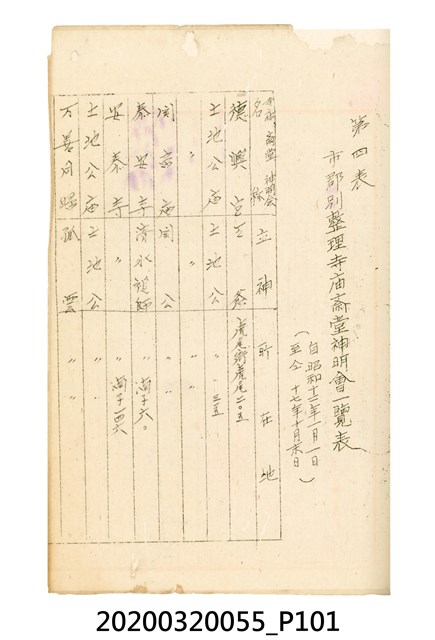 第四表
市郡別整理寺庙斎堂神明會一覽表
(自昭和十二年一月一日
至仝十七年十月末日)
寺庙、斎堂、神明會名稱 主神 所在地
德興宮 王爺 虎尾街虎尾二〇五
土地公庙 土地公 〃 〃 三五
〃 〃 〃 〃
関帝庙 関公 〃 〃
泰安寺 清水祖師 〃 崙子六〇
安泰寺 〃 〃 崙子一四六
土地公庙 土地公 〃 〃
万善同歸 孤雲 〃 〃
20200320055_P101